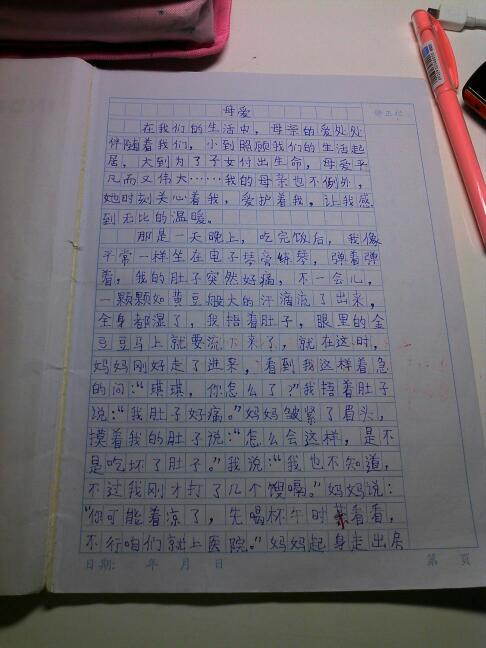 母爱
修正栏
在我们的生活中，母亲的爱处处
伴随着我们，小到照顾我们的生活起
居，大到为了子女付出生命，母爱平
凡而又伟大……我的母亲也不例外，
她时刻关心着我，爱护着我，让我感
到无比的温暖。
那是一天晚上，吃完饭后，我像
平常一样坐在电子琴旁练琴，弹着弹
着，我的肚子突然好痛，不一会儿，
一颗颗如黄豆般大的汗滴流了出来，
全身都湿了，我捂着肚子，眼里的金
豆豆马上就要流下来了，就在这时，
妈妈刚好走了进来，看到我这样着急
的问：“琪琪，你怎么了？”我捂着肚子
说：“我肚子好痛。”妈妈皱紧了眉头，
摸着我的肚子说：“怎么会这样，是不
是吃坏了肚子。”我说：“我也不知道，
不过我刚才打了几个嗳嗝。”妈妈说：
“你可能着凉了，先喝杯午时茶看看，
不行咱们就上医院。”妈妈起身走出房
日期： 年 月 日
第 页